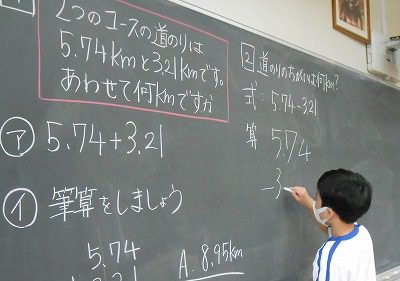 2つのコースの道のりは
5.74kmと3.21kmです。
あわせて何kmですか
ア 5.74+3.21
イ 筆算をしましょう
5.74
A. 8.95km
2 道のりのちがいは何km?
式: 5.74-3.21
算 5.74
-3